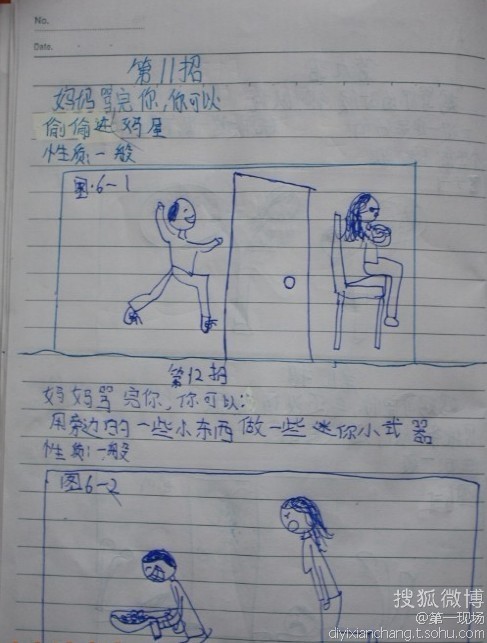 No.
Date.
第11招
妈妈骂完你,你可以
偷偷进妈屋
性质:一般
图·6-1
第12招
妈妈骂完你,你可以:
用旁边的一些小东西做一些迷你小武器
性质:一般
图6-2
搜狐微博
@第一现场
diyixianchang.t.sohu.com